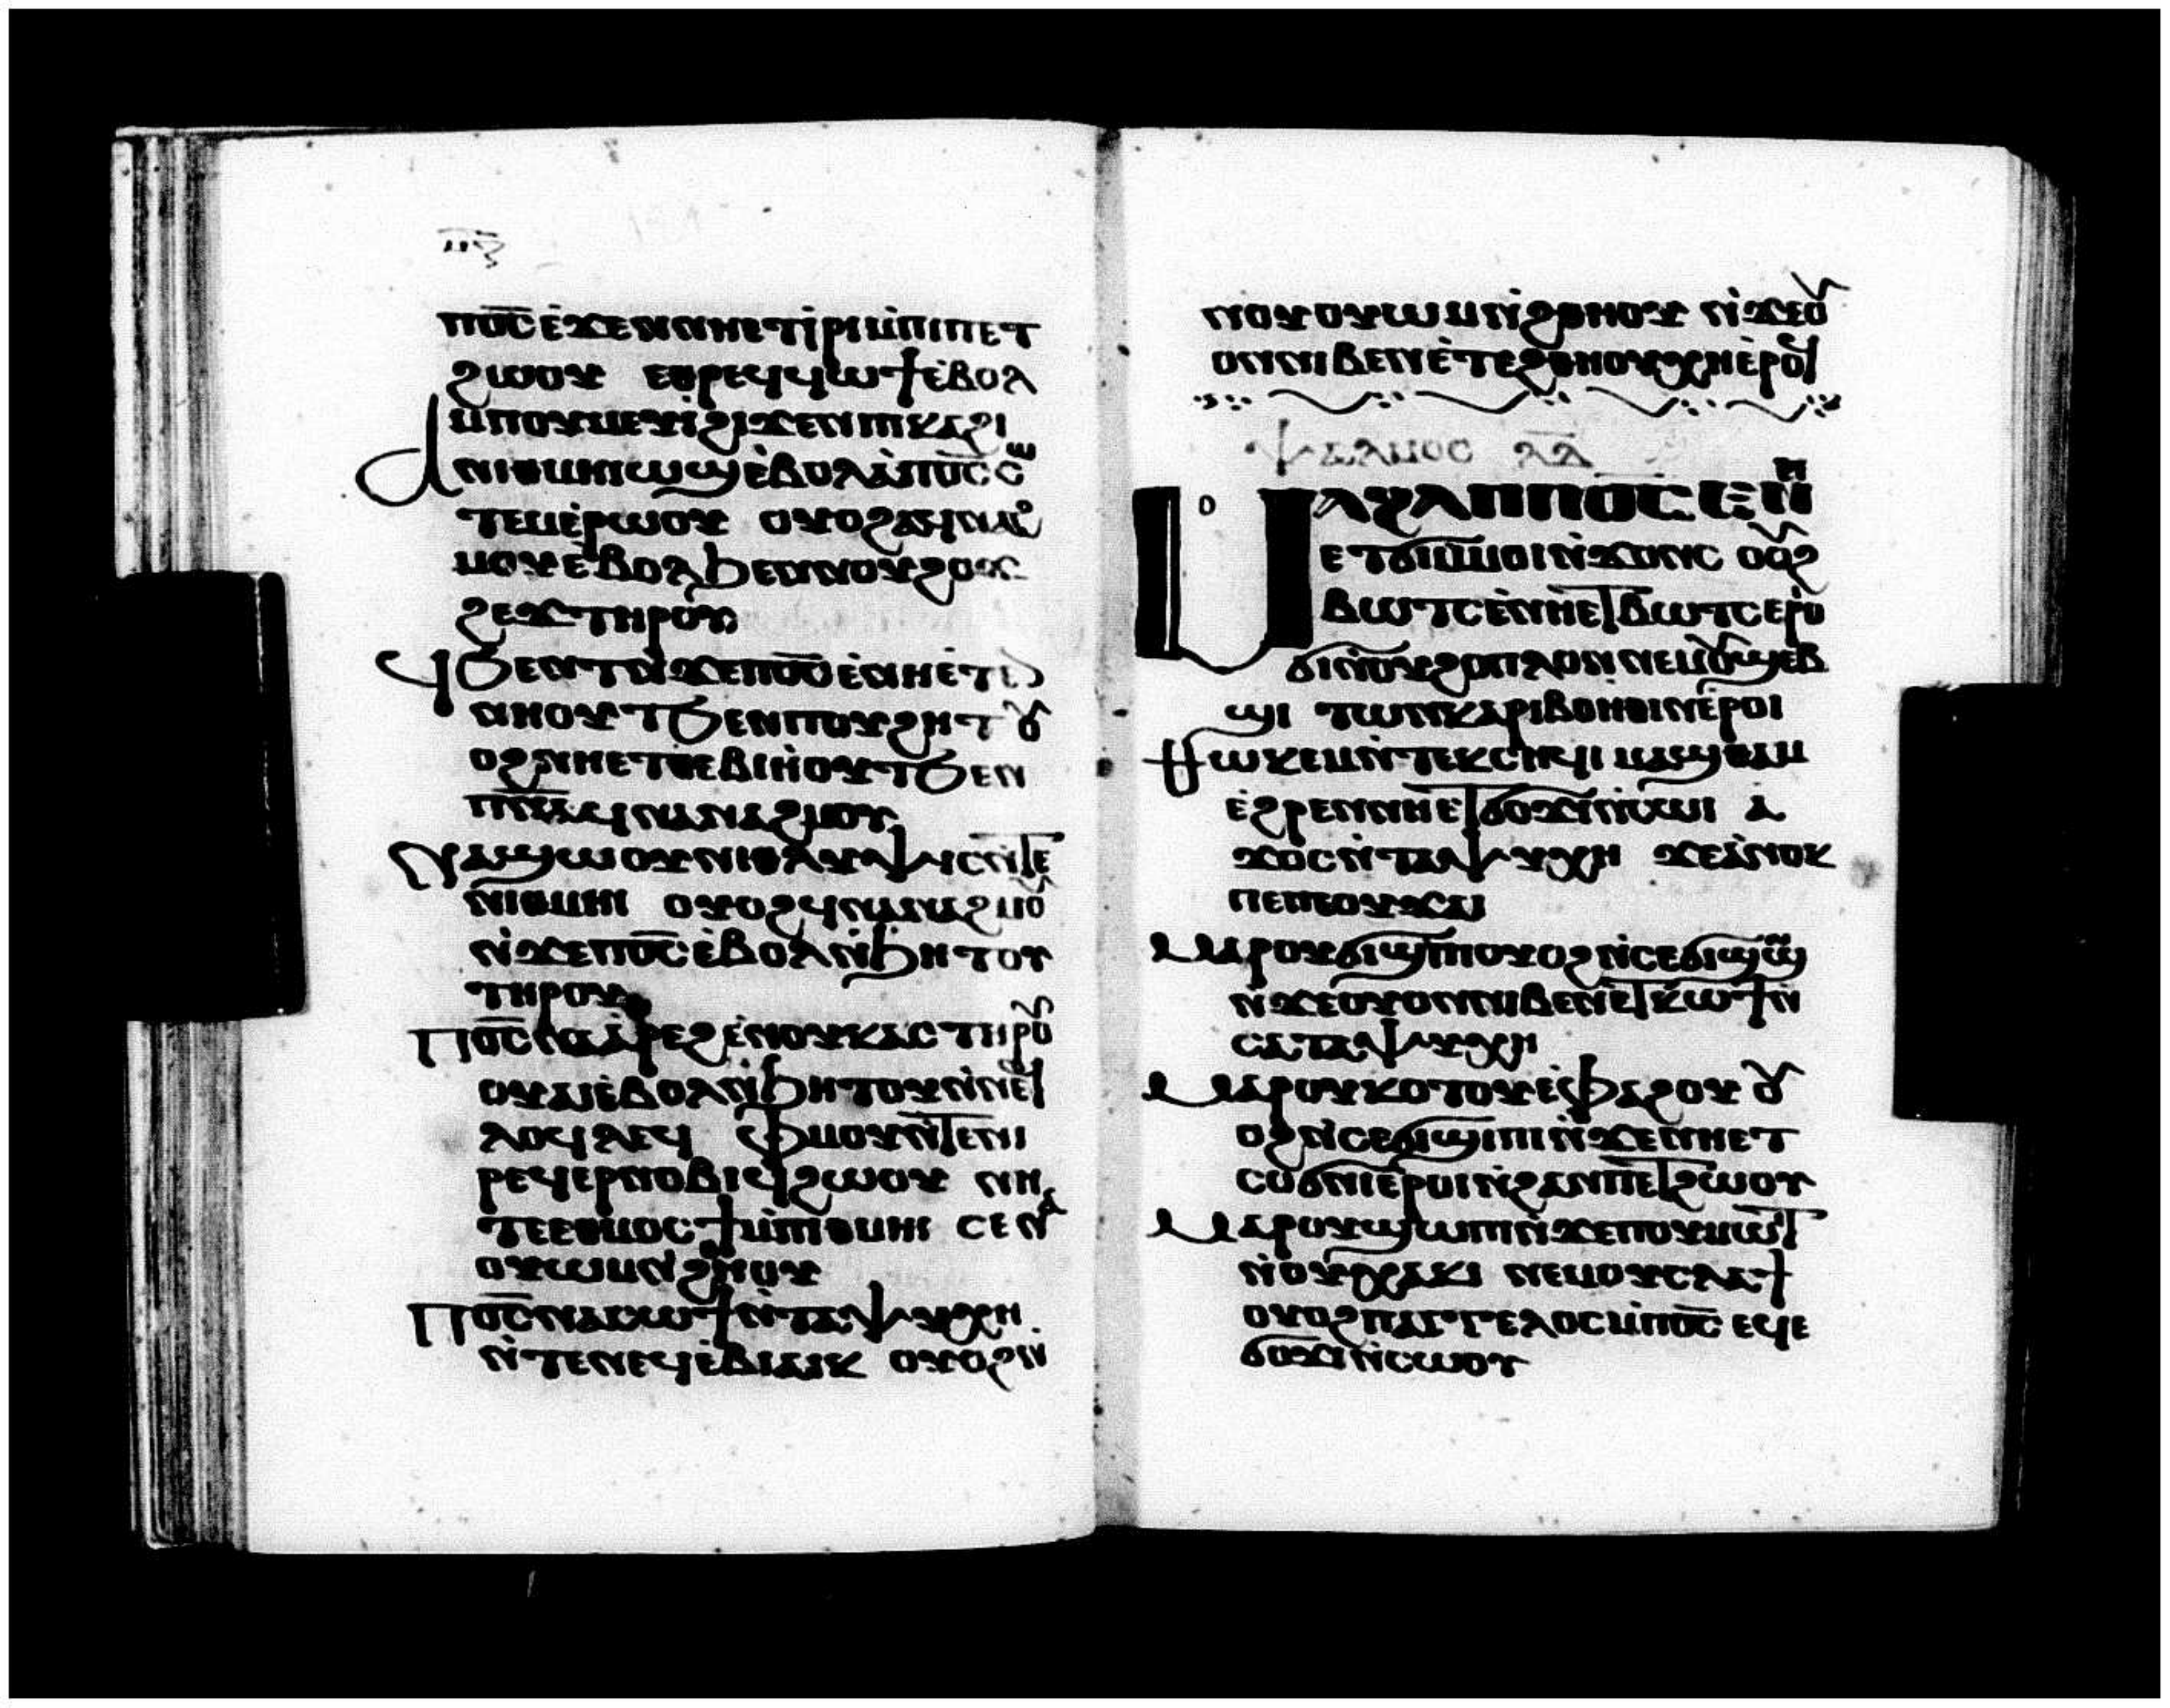 ⲡ̅ⲍ̅
ⲡⲟ̅ⲥ̅ ⲉ̀ϫⲉⲛ ⲛⲏⲉⲧⲓ̀ⲣⲓ ⲙ̀ⲡⲓⲡⲉⲧ
ϩⲱⲟⲩ ⲉⲑⲣⲉϥϥⲱϯ ⲉ̀ⲃⲟⲗ
ⲙ̀ⲡⲟⲩⲙⲉⲩⲓ̀ ϩⲓϫⲉⲛ ⲡⲓⲕⲁϩⲓ
Ⲁ ⲛⲓⲑⲙⲏⲓ ⲱϣ ⲉ̀ⲃⲟⲗ ⲁ̀ ⲡⲟ̅ⲥ̅ ⲥⲱ
ⲧⲉⲙ ⲉ̀ⲣⲱⲟⲩ ⲟⲩⲟϩ ⲁϥⲛⲁϩ
ⲙⲟⲩ ⲉ̀ⲃⲟⲗ ϧⲉⲛ ⲛⲟⲩϩⲟϫ
ϩⲉϫ ⲧⲏⲣⲟⲩ
Ϥϧⲉⲛⲧ ⲛ̀ϫⲉ ⲡⲟ̅ⲥ̅ ⲉ̀ⲛⲏⲉⲧⲧⲉ
ⲛⲏⲟⲩⲧ ϧⲉⲛ ⲡⲟⲩϩⲏⲧ ⲟⲩ
ⲟϩ ⲛⲏⲉⲧⲑⲉⲃⲓⲏⲟⲩⲧ ϧⲉⲛ
ⲡⲓⲡ̅ⲛ̅ⲁ̅ ϥⲛⲁⲛⲁϩⲙⲟⲩ
Ⲛⲁϣⲱⲟⲩ ⲛⲓⲑⲗⲩⲯⲓⲥ ⲛ̀ⲧⲉ
ⲛⲓⲑⲙⲏⲓ ⲟⲩⲟϩ ϥⲛⲁⲛⲁϩⲙⲟⲩ
ⲛ̀ϫⲉ ⲡⲟ̅ⲥ̅ ⲉ̀ⲃⲟⲗ ⲛ̀ϧⲏⲧⲟⲩ
ⲧⲏⲣⲟⲩ
Ⲡⲟ̅ⲥ̅ ⲛⲁⲁ̀ⲣⲉϩ ⲉ̀ⲛⲟⲩⲕⲁⲥ ⲧⲏⲣⲟⲩ
ⲟⲩⲁⲓ ⲉ̀ⲃⲟⲗ ⲛ̀ϧⲏⲧⲟⲩ ⲛ̀ⲛⲉϥ
ⲗⲟϥⲗⲉϥ ⲫⲙⲟⲩ ⲛ̀ⲧⲉ ⲛⲓ
ⲣⲉϥⲉⲣⲛⲟⲃⲓ ϥϩⲱⲟⲩ ⲛⲏ
ⲧⲉⲑⲙⲟⲥϯ ⲙ̀ⲡⲓⲑⲙⲏⲓ ⲥⲉⲛⲁ
ⲟⲩⲱⲙ ⲛ̀ϩⲑⲏⲟⲩ
Ⲡⲟ̅ⲥ̅ ⲛⲁⲥⲱϯ ⲛ̀ⲧⲁⲯⲩⲭⲏ
ⲛ̀ⲧⲉ ⲛⲉϥⲉ̀ⲃⲓⲁⲓⲕ ⲟⲩⲟϩ ⲛ̀
ⲛⲟⲩⲟⲩⲱⲙ ⲛ̀ϩⲑⲏⲟⲩ ⲛ̀ϫⲉⲟⲩ
ⲟⲛ ⲛⲓⲃⲉⲛ ⲉ̀ⲧⲉ ϩⲑⲏⲟⲩ ⲭⲏ ⲉ̀ⲣⲟϥ
ⲯⲁⲗⲙⲟⲥ ⲗ̅ⲇ̅
ⲘⲀϨⲀⲠ ⲠⲞ̅Ⲥ̅ ⲈⲚⲎ
ⲉⲧϭⲓ ⲙ̀ⲙⲟⲓ ⲛ̀ϫⲟⲛⲥ ⲟⲩⲟϩ
ⲃⲱⲧⲥ ⲉ̀ⲛⲏⲉⲧⲃⲱⲧⲥ ⲉⲣⲟⲓ
ϭⲓ ⲛ̀ⲟⲩϩⲟⲡⲗⲟⲛ ⲛⲉⲙ ⲟⲩϣⲉⲃ
ϣⲓ ⲧⲱⲛⲕ ⲁⲣⲓⲃⲟⲏⲑⲓⲛ ⲉ̀ⲣⲟⲓ
Ⲑⲱⲕⲉⲙ ⲛ̀ⲧⲉⲕⲥⲏϥⲓ ⲙⲁϣⲑⲁⲙ
ⲉ̀ϩⲣⲉⲛ ⲛⲏⲉⲧϭⲟϫⲓ ⲛ̀ⲥⲱⲓ ⲁ̀
ϫⲟⲥ ⲛ̀ⲧⲁⲯⲩⲭⲏ ϫⲉ ⲁ̀ⲛⲟⲕ
ⲡⲉ ⲡⲉⲟⲩϫⲁⲓ
Ⲙⲁⲣⲟⲩϭⲓϣⲓⲡⲓ ⲟⲩⲟϩ ⲛ̀ⲥⲉϭⲓϣⲱϣ
ⲛ̀ϫⲉ ⲟⲩⲟⲛ ⲛⲓⲃⲉⲛ ⲉⲧⲕⲱϯ ⲛ̀
ⲥⲁ ⲧⲁⲯⲩⲭⲏ
Ⲙⲁⲣⲟⲩⲕⲟⲧⲟⲩ ⲉ̀ⲫⲁϩⲟⲩ ⲟⲩ
ⲟϩ ⲛ̀ⲥⲉϭⲓϣⲓⲡⲓ ⲛ̀ϫⲉ ⲛⲏⲉⲧ
ⲥⲟϭⲛⲓ ⲉ̀ⲣⲟⲓ ⲛ̀ϩⲁⲛⲡⲉⲧϩⲱⲟⲩ
Ⲙⲁⲣⲟⲩϣⲱⲡⲓ ⲛ̀ϫⲉ ⲡⲟⲩⲙⲱⲓⲧ
ⲛ̀ⲟⲩⲭⲁⲕⲓ ⲛⲉⲙ ⲟⲩⲥⲗⲁϯ
ⲟⲩⲟϩ ⲡⲁⲅⲅⲉⲗⲟⲥ ⲙ̀ⲡⲟ̅ⲥ̅ ⲉϥⲉ
ϭⲟϫⲓ ⲛ̀ⲥⲱⲟⲩ